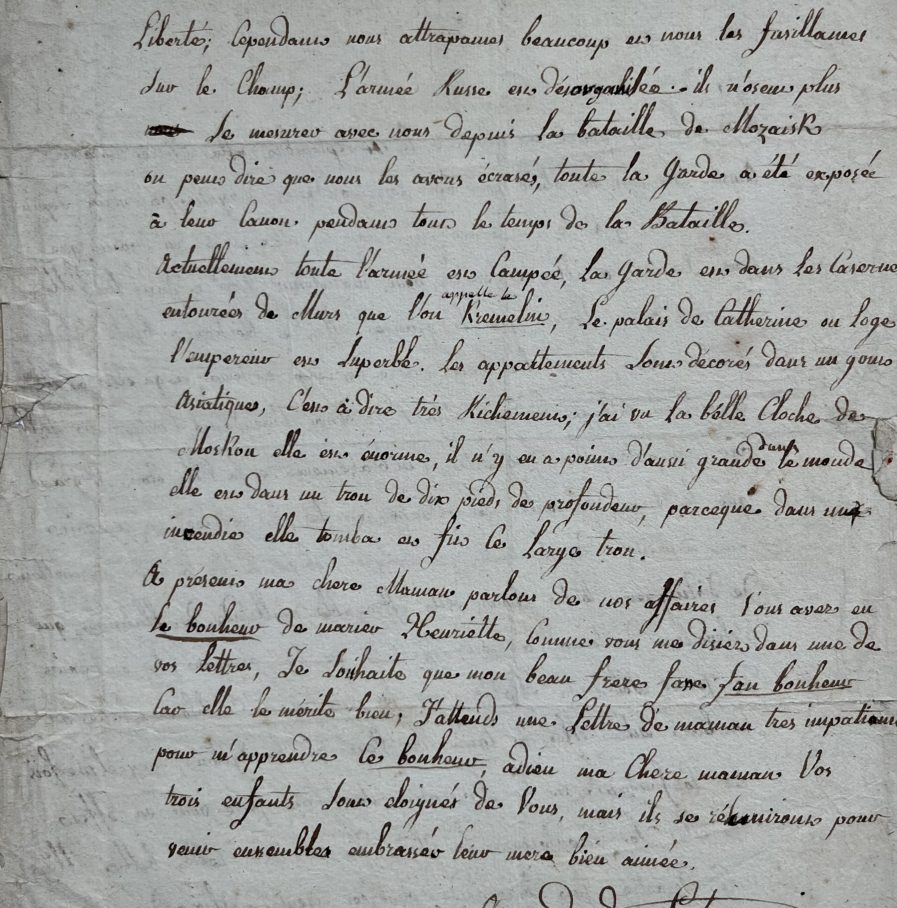 Liberté; Cependant nous attrapames beaucoup et nous les fusillames
Sur le Champ; L'armée Russe est désorganisée.. ils n'osent plus
Se mesurer avec nous depuis la bataille de Mozaisk
on peut dire que nous les avons écrasés, toute la Garde a été exposée
à leur Canon pendant tout le temps de la Bataille.
Actuellement toute l'armée est Campée, la Garde est dans les Caserne
appelle le
entourées de Murs que l'on Kremelin, Le palais de Catherine ou loge
l'empereur est Superbe. les appartements Sont décorés dans un gout
Asiatique, C'est à dire très Richement; j'ai vu la belle Cloche de
dans
Moskou elle est énorme, il n'y en a point d'aussi grande le monde
elle est dans un trou de dix pieds de profondeur, parceque dans une
incendie elle tomba et fit Ce Large trou.
A présent ma chere Maman parlons de nos affaires Vous avez eu
le bonheur de marier Henriette, Comme vous me disiez dans une de
vos lettres, Je Souhaite que mon beau frere fasse San bonheur
Car elle le mérite bien; J'attends une Lettre de maman très impatiem
pour m'apprendre Ce bonheur, adieu ma Chere maman Vos
trois enfants Sont eloignés de Vous, mais ils se réuniront pour
venir ensembles embrasser leur mere bien aimée.